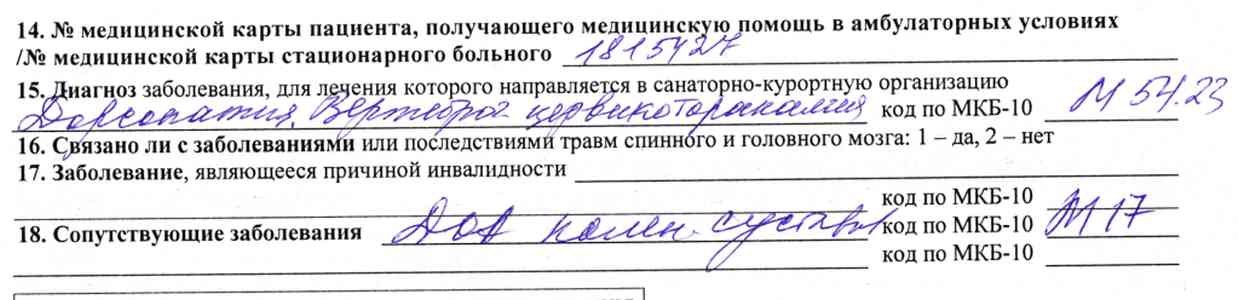 14. № медицинской карты пациента, получающего медицинскую помощь в амбулаторных условиях
/№ медицинской карты стационарного больного 1815427
15. Диагноз заболевания, для лечения которого направляется в санаторно-курортную организацию
Дорсопатия. Вертеброг. цервикоторакалгия код по МКБ-10 М 54.23
16. Связано ли с заболеваниями или последствиями травм спинного и головного мозга: 1 – да, 2 – нет
17. Заболевание, являющееся причиной инвалидности
код по МКБ-10
18. Сопутствующие заболевания ДОА колен. суставов код по МКБ-10 М 17
код по МКБ-10